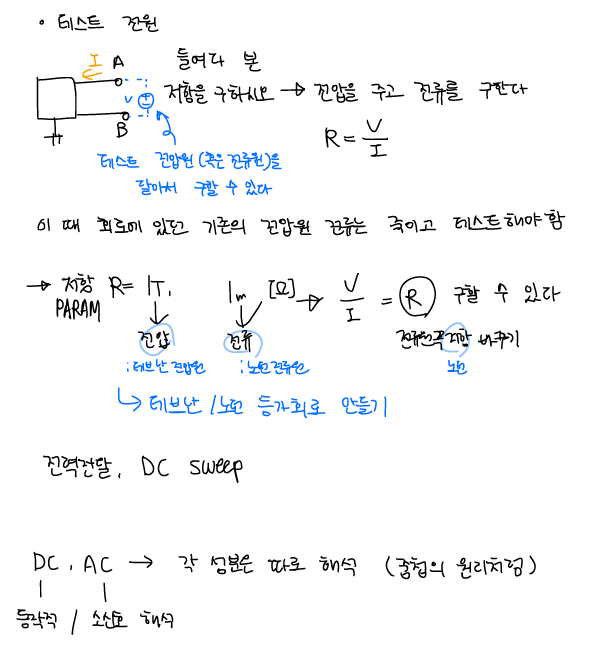 • 테스트 전원
I A 들여다 본
저항을 구하시오 → 전압을 주고 전류를 구한다
V + -
B
R = V/I
테스트 전압원 (혹은 전류원)을
달아서 구할 수 있다
이 때 회로에 있던 기존의 전압원 전류는 죽이고 테스트해야 함
→ 저항 R = 1T, 1m [Ω] → V/I = R 구할 수 있다
PARAM
전압 전류 저항 바꾸기
: 테브난 전압원 : 노턴 전류원 노턴
↳ 테브난 / 노턴 등가회로 만들기
전력전달, DC sweep
DC, AC → 각 성분은 따로 해석 (중첩의 원리처럼)
동작점 / 소신호 해석